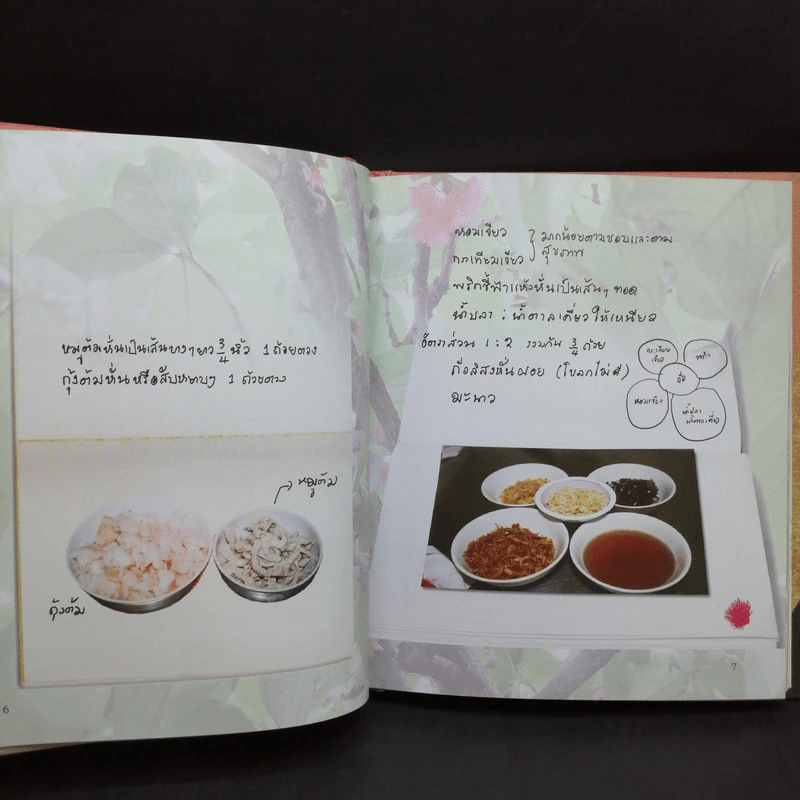 หมูต้มหั่นเป็นเส้นบางๆยาว 3/4 นิ้ว 1 ถ้วยตวง
กุ้งต้มหั่นหรือสับหยาบๆ 1 ถ้วยตวง
หมูต้ม
กุ้งต้ม
6
หอมเจียว } มากน้อยตามชอบและตาม
กระเทียมเจียว } สุขภาพ
พริกชี้ฟ้าแห้งหั่นเป็นเส้นๆ ทอด
น้ำปลา : น้ำตาลเคี่ยวให้เหนียว
อัตราส่วน 1 : 2 รวมกัน 3/4 ถ้วย
ถั่วลิสงหั่นฝอย (โขลกไม่ดี)
มะนาว
กระเทียม
เจียว
พริก
ถั่ว
หอมเจียว
น้ำปลา
7